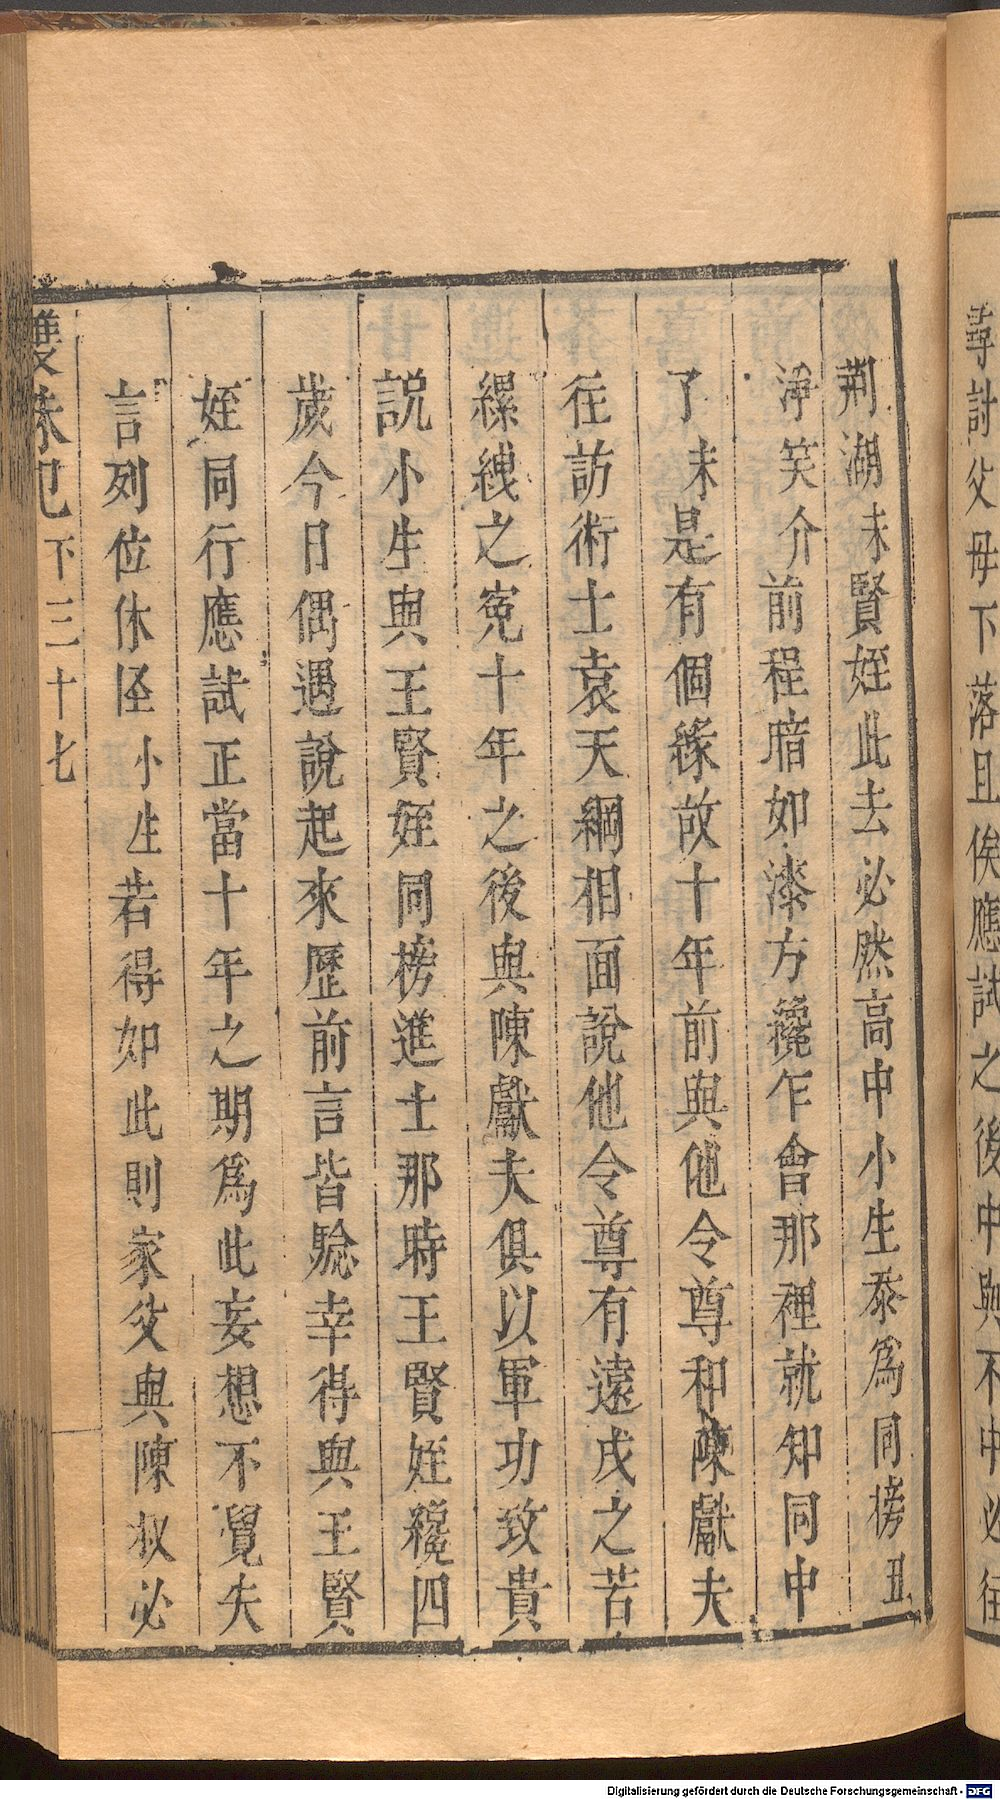 尋討父母下落且俟應試之後中與不中必往
荆湖末賢姪此去必然高中小生忝爲同榜丑
淨笑介前程暗如漆方纔乍會那裡就知同中
了末是有個緣故十年前與他令尊和陳獻夫
往訪術士袁天綱相面說他令尊有遠戍之苦
縲絏之寃十年之後與陳獻夫俱以軍功致貴
說小生與王賢姪同榜進士那時王賢姪纔四
歲今日偶遇說起來歷前言皆驗幸得與王賢
姪同行應試正當十年之期爲此妄想不覺失
言列位休怪小生若得如此則家父與陳叔必
雙珠記下三十七
Digitalisierung gefördert durch die Deutsche Forschungsgemeinschaft - DFG